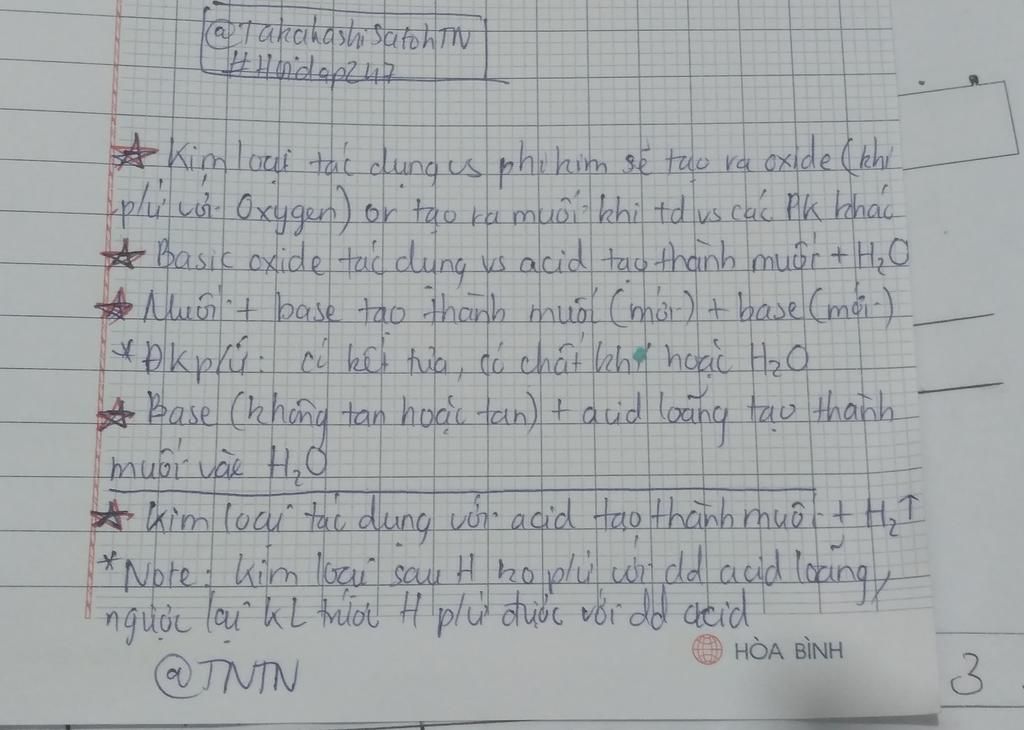 @TakahashiSatohTN
#Hoidap247
Kim loại tác dụng vs phi kim sẽ tạo ra oxide (khi
p/ứ với Oxygen) or tạo ra muối khi td vs các PK khác
Basic oxide tác dụng vs acid tạo thành muối + H₂O
Muối + base tạo thành muối (mới) + base (mới)
*ĐK p/ứ: có kết tủa, có chất khí hoặc H₂O
Base (không tan hoặc tan) + acid loãng tạo thành
muối và H₂O
Kim loại tác dụng với acid tạo thành muối + H₂↑
*Note: Kim loại sau H ko p/ứ với dd acid loãng,
ngược lại KL trước H p/ứ được với dd acid
HÒA BÌNH
@TNTN
3